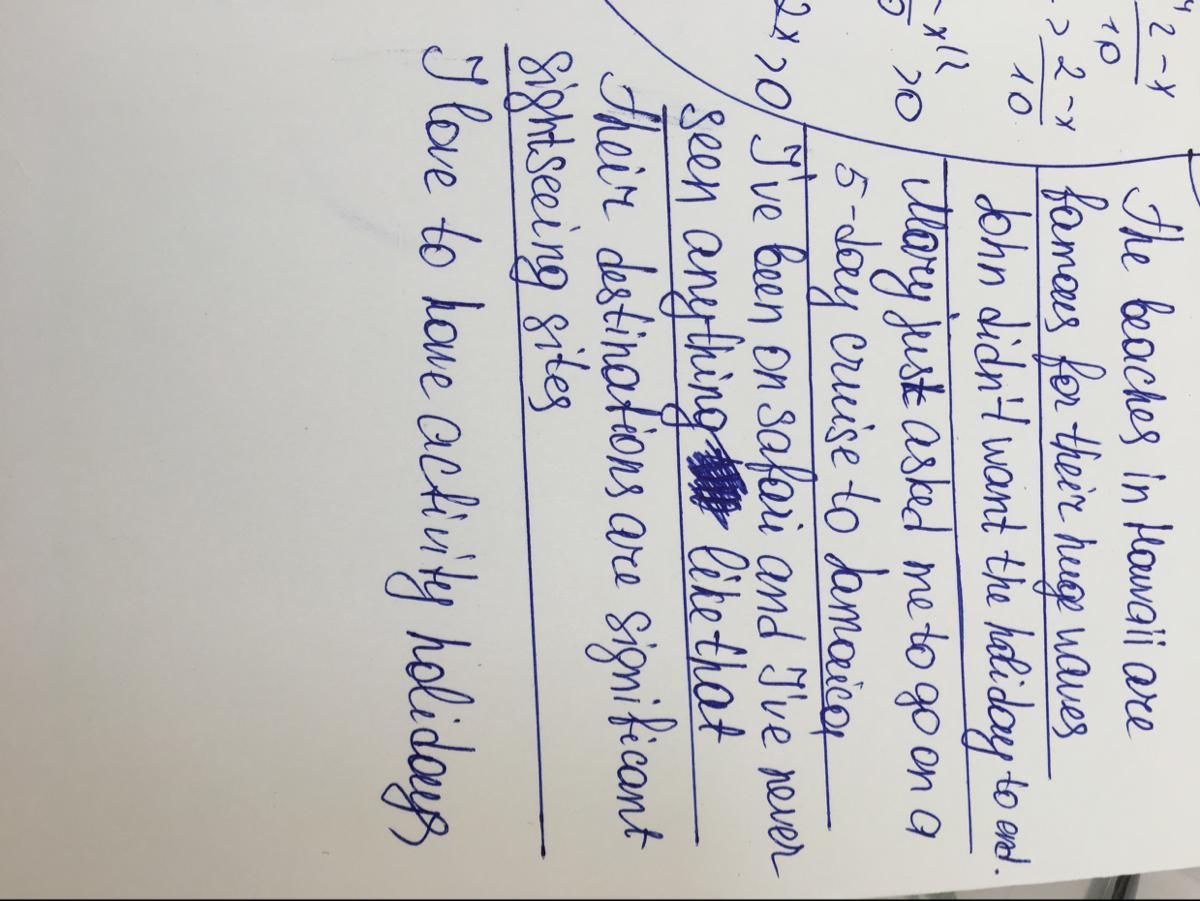 2 - x
10
> 2 - x
10
> 0
2x > 0
The beaches in Hawaii are
famous for their huge waves
John didn't want the holiday to end.
Mary just asked me to go on a
5-day cruise to Jamaica
I've been on safari and I've never
seen anything like that
Their destinations are significant
sightseeing sites
I love to have activity holidays